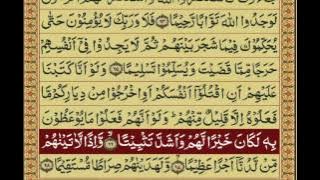 لَوَجَدُوا اللّٰهَ تَوَّابًا رَّحِيْمًا ﴿٦٤﴾ فَلَا وَرَبِّكَ لَا يُؤْمِنُوْنَ حَتّٰى
يُحَكِّمُوْكَ فِيْمَا شَجَرَ بَيْنَهُمْ ثُمَّ لَا يَجِدُوْا فِىْٓ اَنْفُسِهِمْ
حَرَجًا مِّمَّا قَضَيْتَ وَيُسَلِّمُوْا تَسْلِيْمًا ﴿٦٥﴾ وَلَوْ اَنَّا كَتَبْنَا
عَلَيْهِمْ اَنِ اقْتُلُوْٓا اَنْفُسَكُمْ اَوِ اخْرُجُوْا مِنْ دِيَارِكُمْ مَّا
فَعَلُوْهُ اِلَّا قَلِيْلٌ مِّنْهُمْ ؕ وَلَوْ اَنَّهُمْ فَعَلُوْا مَا يُوْعَظُوْنَ
بِهٖ لَكَانَ خَيْرًا لَّهُمْ وَاَشَدَّ تَثْبِيْتًا ﴿٦٦﴾ وَّاِذًا لَّاٰتَيْنٰهُمْ
مِّنْ لَّدُنَّاۤ اَجْرًا عَظِيْمًا ﴿٦٧﴾ وَّلَهَدَيْنٰهُمْ صِرَاطًا مُّسْتَقِيْمًا ﴿٦٨﴾